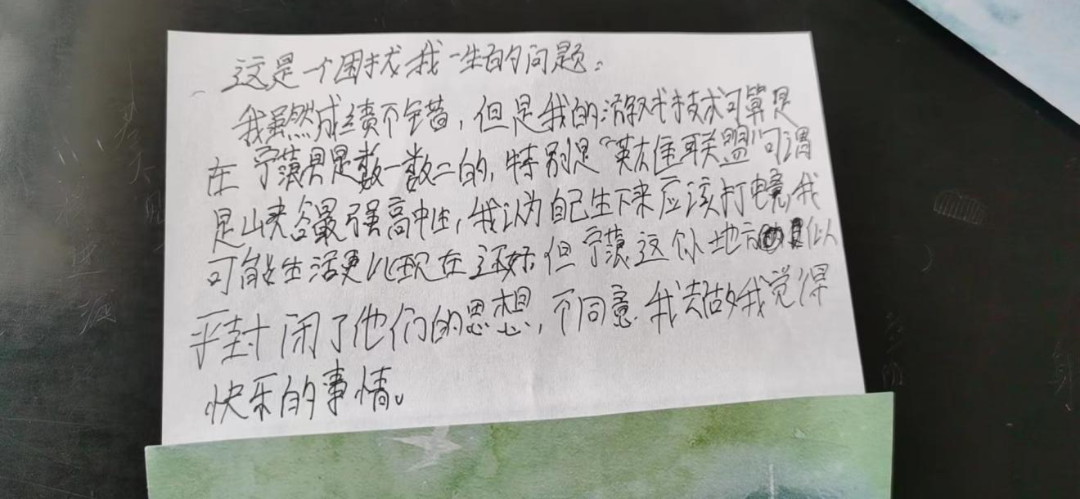 这是一个困扰我一生的问题。
我虽然成绩不错，但是我的游戏技术可算是
在宁蒗县是数一数二的，特别是“英雄联盟”可谓
是山夹谷最强高中生，我认为自己生下来应该打电竞，我
可能生活更比现在还好但宁蒗这个小地方似
乎封闭了他们的思想，不同意我去做我觉得
快乐的事情。